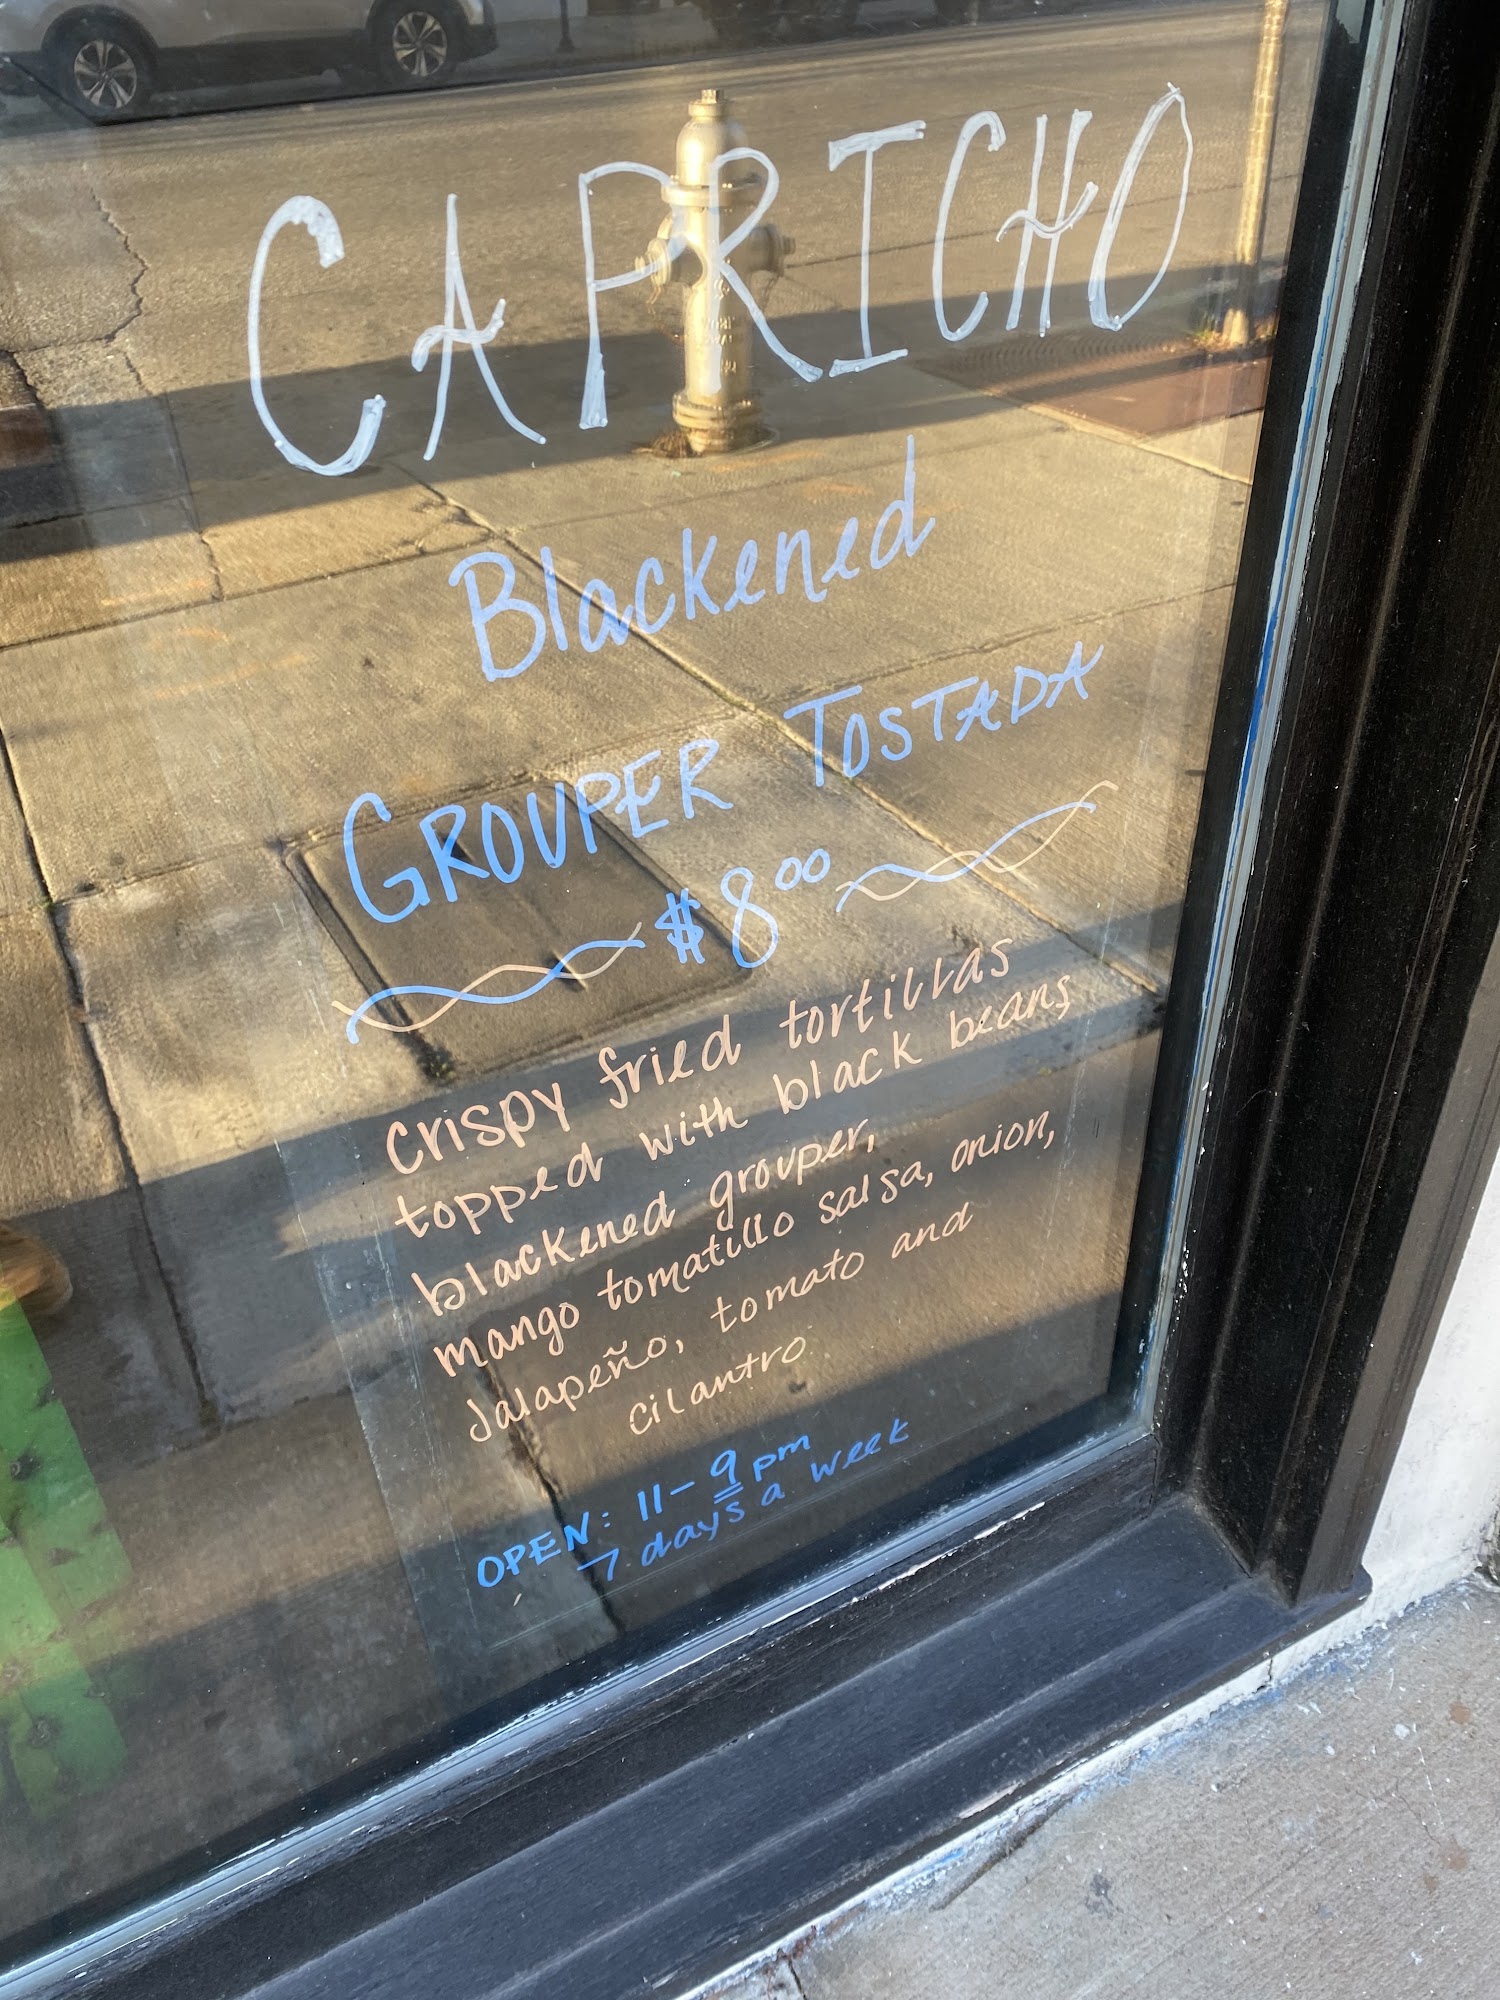 CAPRICHO
Blackened
GROUPER TOSTADA
$8.00
crispy fried tortillas
topped with black beans,
blackened grouper,
mango tomatillo salsa, onion,
Jalapeño, tomato and
cilantro.
OPEN: 11-9pm
7 days a week